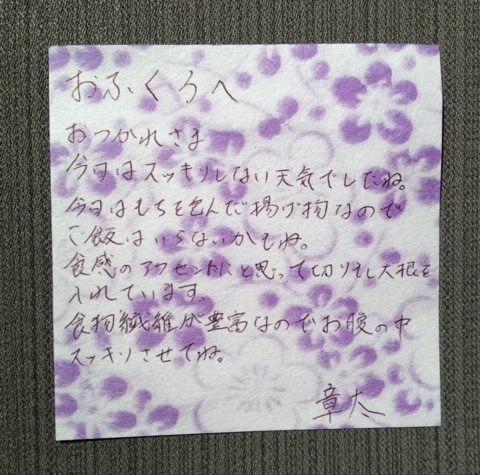 おふくろへ
おつかれさま
今日はスッキリしない天気でしたね。
今日はもちを包んだ揚げ物なので
ご飯はいらないかもね。
食感のアクセントにと思って切り干し大根を
入れています。
食物繊維が豊富なのでお腹の中
スッキリさせてね。
章太